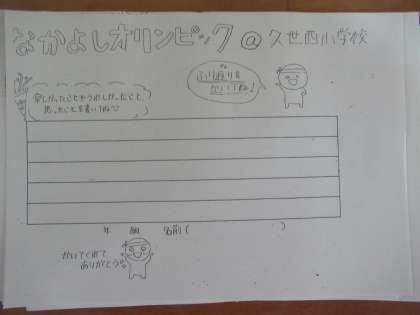 なかよしオリンピック@久世西小学校
ふり返りを
かいてね!
楽しかったことやうれしかったこと
思ったことを書いてね
年 組 名前( )
かいてくれて
ありがとう